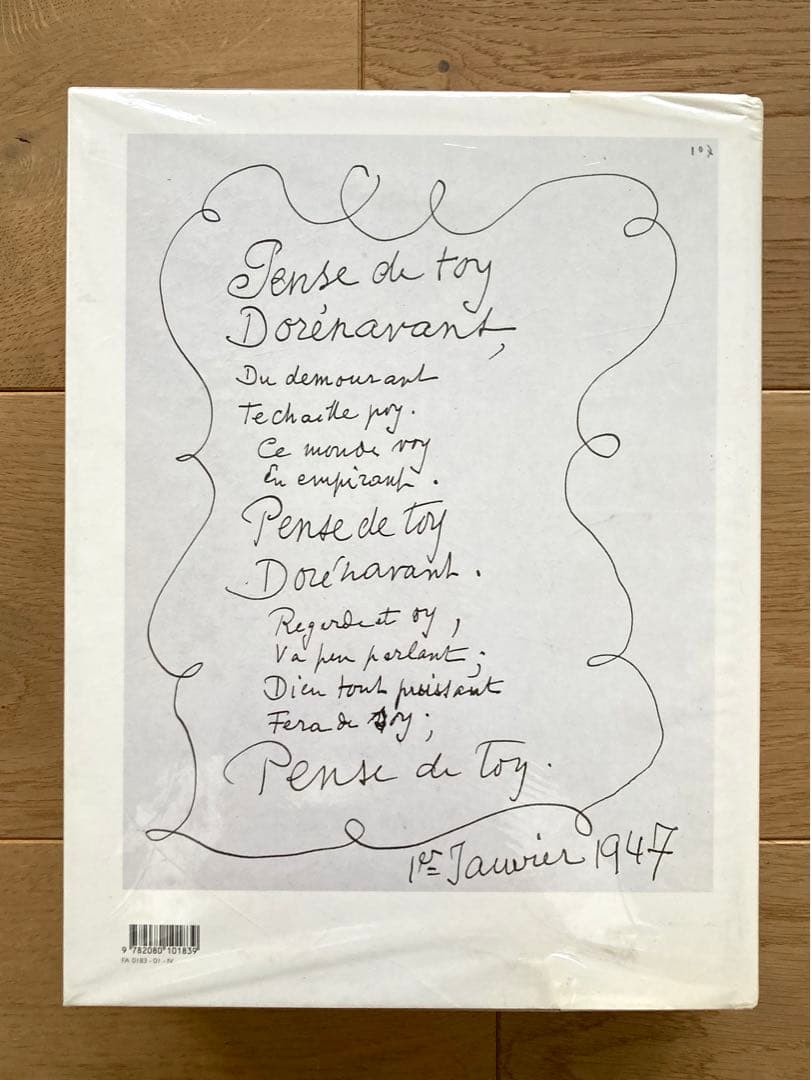 107
Pense de toy
Dorénavant,
Du demourant
Te chaille poy.
Ce monde voy
En empirant.
Pense de toy
Dorénavant.
Regarde et oy,
Va peu parlant;
Dieu tout puissant
Fera de toy;
Pense de toy.
1er Janvier 1947
9 782080 101839
FA 0183 - 01 - IV